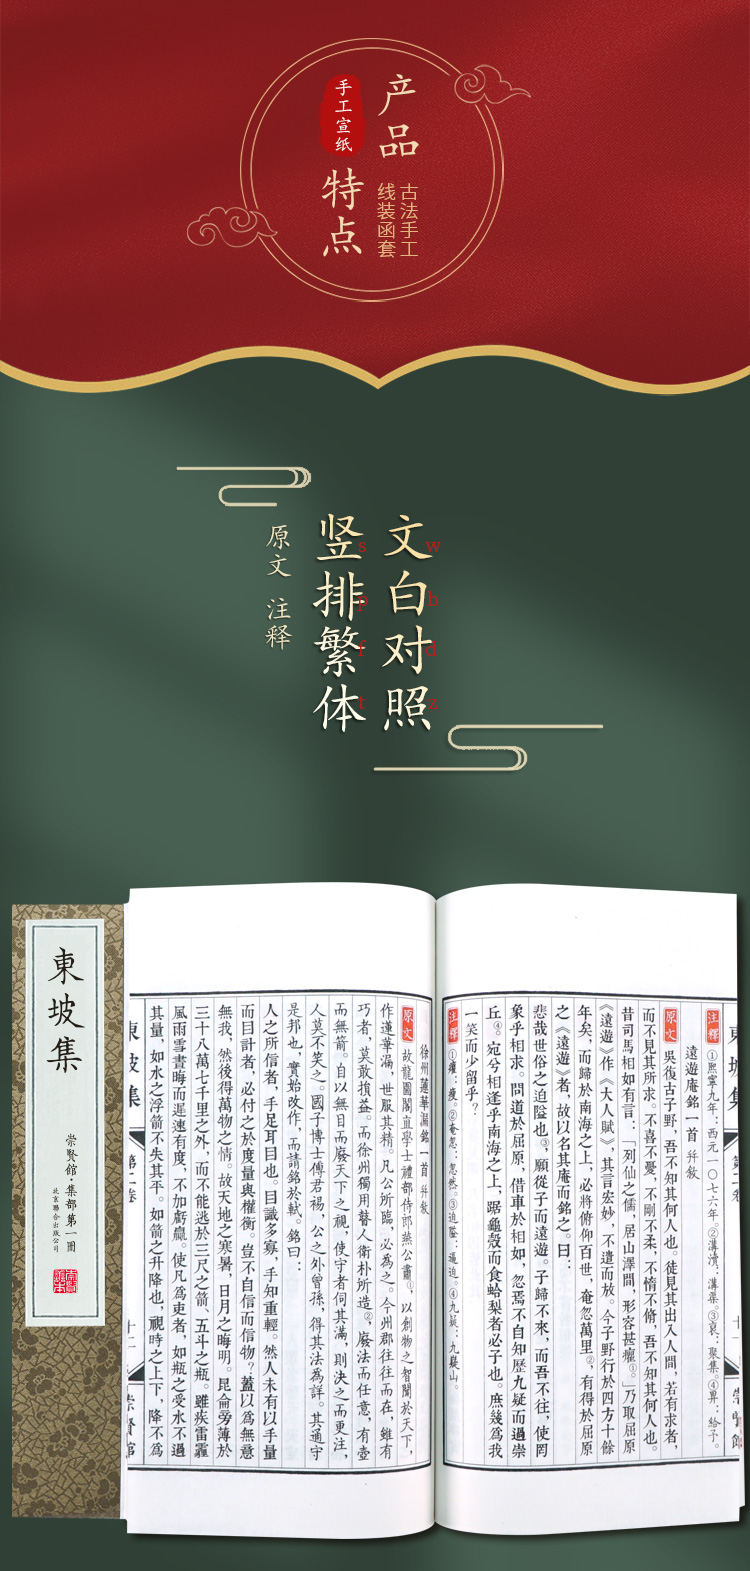 产品
古法手工
线装函套
手工宣纸
特点
文白对照
wbdz
竖排繁体
spft
原文 注释
東坡集
崇賢館·集部第一冊
北京聯合出版公司
東坡集
第二卷
十一
崇賢館
注釋 ①熙寧九年：西元一〇七六年。②溝瀆：溝渠。③裒：聚集。④畀：給予。
遠遊庵銘一首 并敘
原文 吳復古子野，吾不知其何人也。徒見其出入人間，若有求者，
而不見其所求。不喜不憂，不剛不柔，不惰不脩，吾不知其何人也。
昔司馬相如有言：「列仙之儒，居山澤間，形容甚癯①。」乃取屈原
《遠遊》作《大人賦》，其言宏妙，不遣而放。今子野行於四方十餘
年矣，而歸於南海之上，必將俯仰百世，奄忽萬里②，有得於屈原
之《遠遊》者，故以名其庵而銘之。曰：
悲哉世俗之迫隘也③，願從子而遠遊。子歸不來，而吾不往，使罔
象乎相求。問道於屈原，借車於相如，忽焉不自知歷九疑而過崇
丘④。宛兮相逢乎南海之上，踞龜殼而食蛤梨者必子也。庶幾為我
一笑而少留乎？
注釋 ①癯：瘦。②奄忽：忽然。③迫隘：逼迫。④九疑：九嶷山。
徐州蓮華漏銘一首 并敘
原文 故龍圖閣直學士禮部侍郎燕公肅①，以創物之智聞於天下，
作蓮華漏，世服其精。凡公所臨，必為之。今州郡往往而在，雖有
巧者，莫敢損益。而徐州獨用瞽人衛朴所造②，廢法而任意，有壺
而無箭。自以無目而廢天下之視，使守者伺其滿，則決之而更注，
人莫不笑之。國子博士傅君裼，公之外曾孫，得其法為詳。其通守
是邦也，實始改作，而請銘於軾。銘曰：
人之所信者，手足耳目也。目識多寡，手知重輕。然人未有以手量
而目計者，必付之於度量與權衡。豈不自信而信物？蓋以為無意
無我，然後得萬物之情。故天地之寒暑，日月之晦明。昆侖旁薄於
三十八萬七千里之外，而不能逃於三尺之箭、五斗之瓶。雖疾雷霾
風雨雪晝晦而遲速有度，不加虧贏。使凡為吏者，如瓶之受水不過
其量，如水之浮箭不失其平。如箭之升降也，視時之上下，降不為
東坡集
第二卷
十二
崇賢館